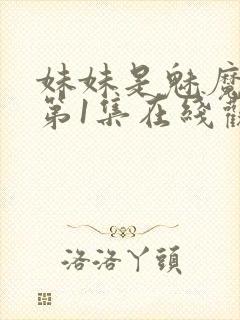 妹妹是魅魔
第1集在綫觀
洛洛丫頭